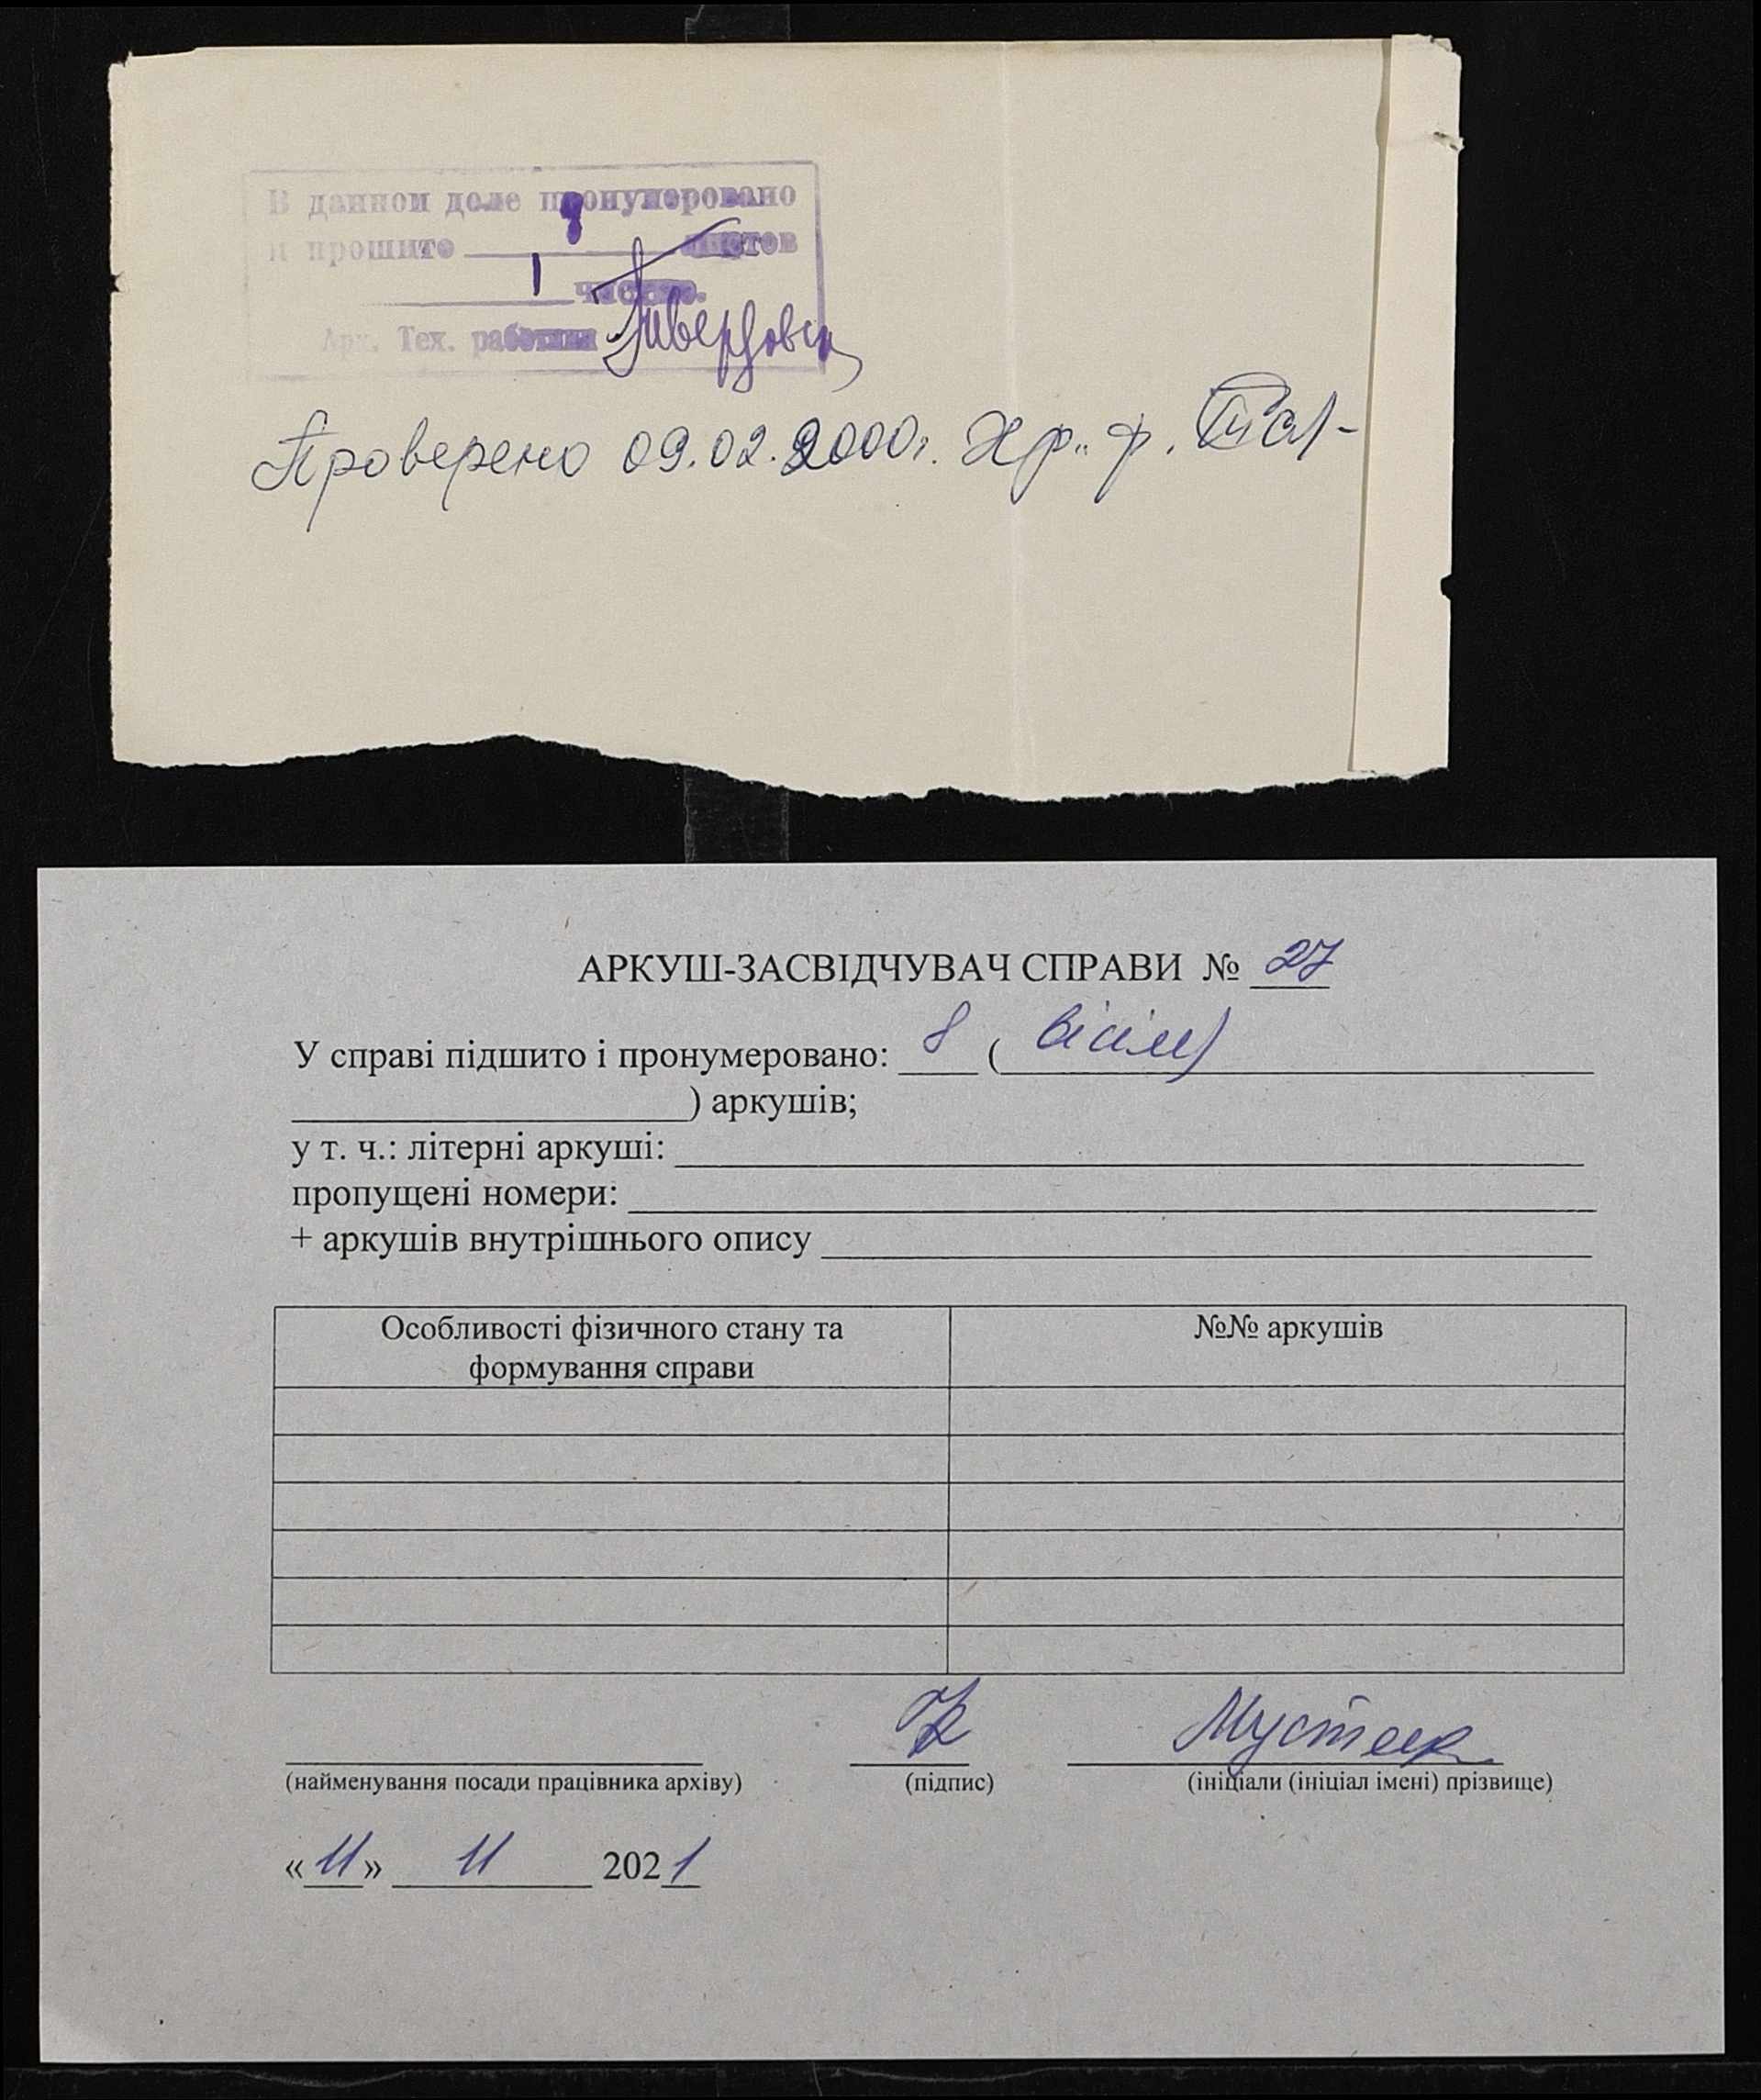 В данном доле пронумеровано
и прошито 8 листов
1 чистых.
Арх. Тех. работник
Проверено 09.02.2000г. Хр. ф.
АРКУШ-ЗАСВІДЧУВАЧ СПРАВИ № 27
У справі підшито і пронумеровано: 8 ( вісім)
) аркушів;
у т. ч.: літерні аркуші:
пропущені номери:
+ аркушів внутрішнього опису
Особливості фізичного стану та
формування справи
№№ аркушів
Мустеца
(найменування посади працівника архіву) (підпис) (ініціали (ініціал імені) прізвище)
«11» 11 2021